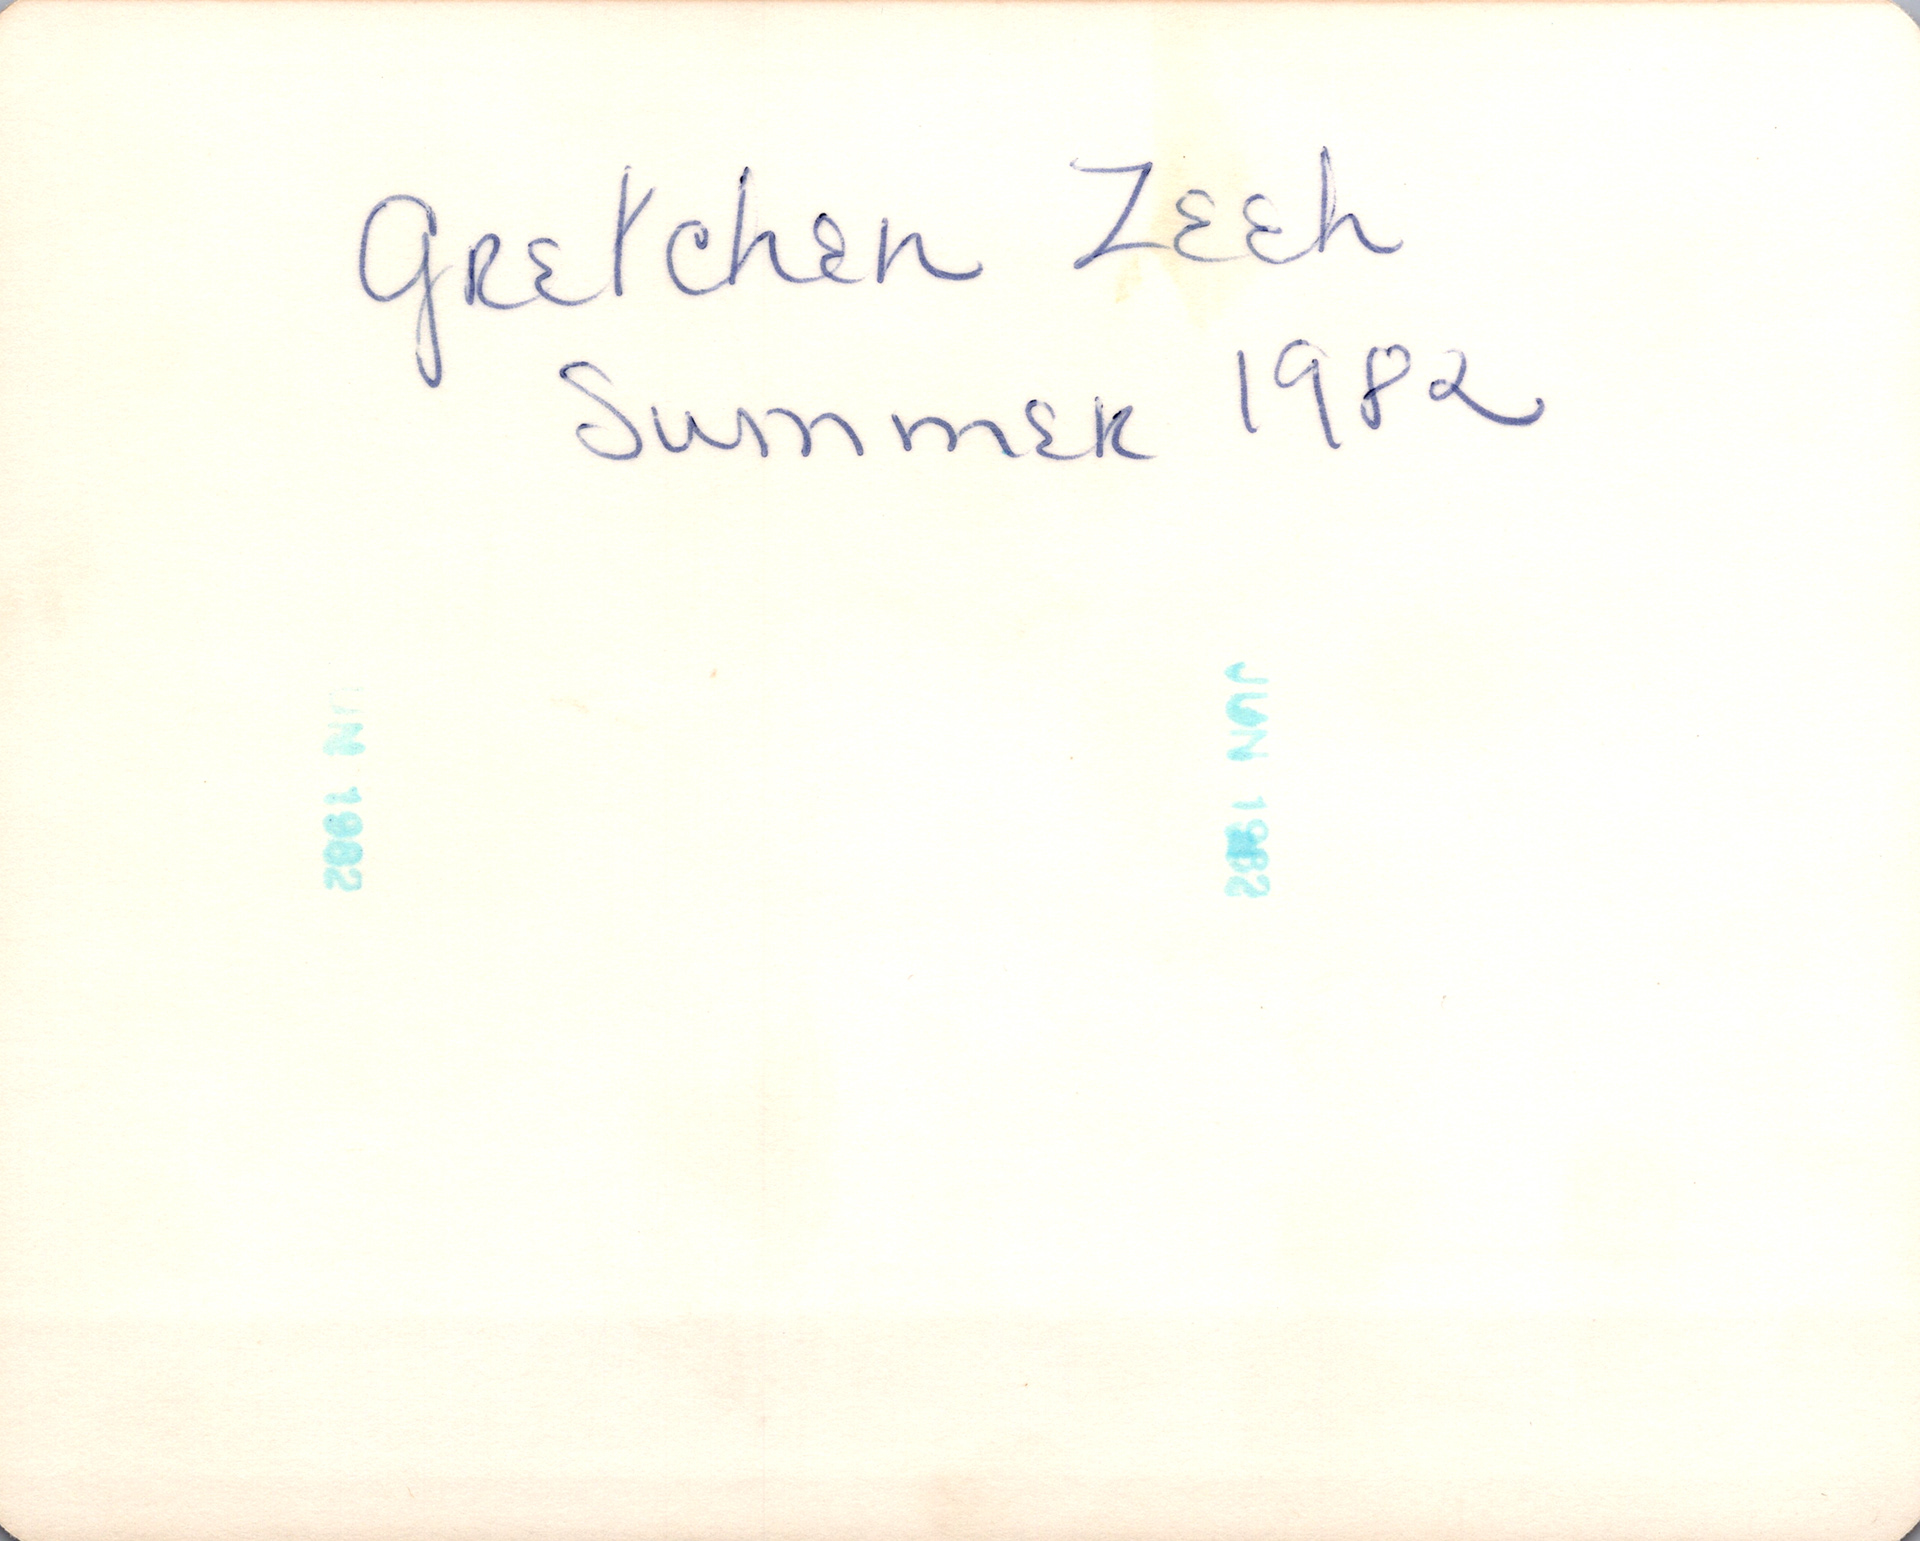 Gretchen Zeeh
Summer 1982
UN 1982
JUN 1982